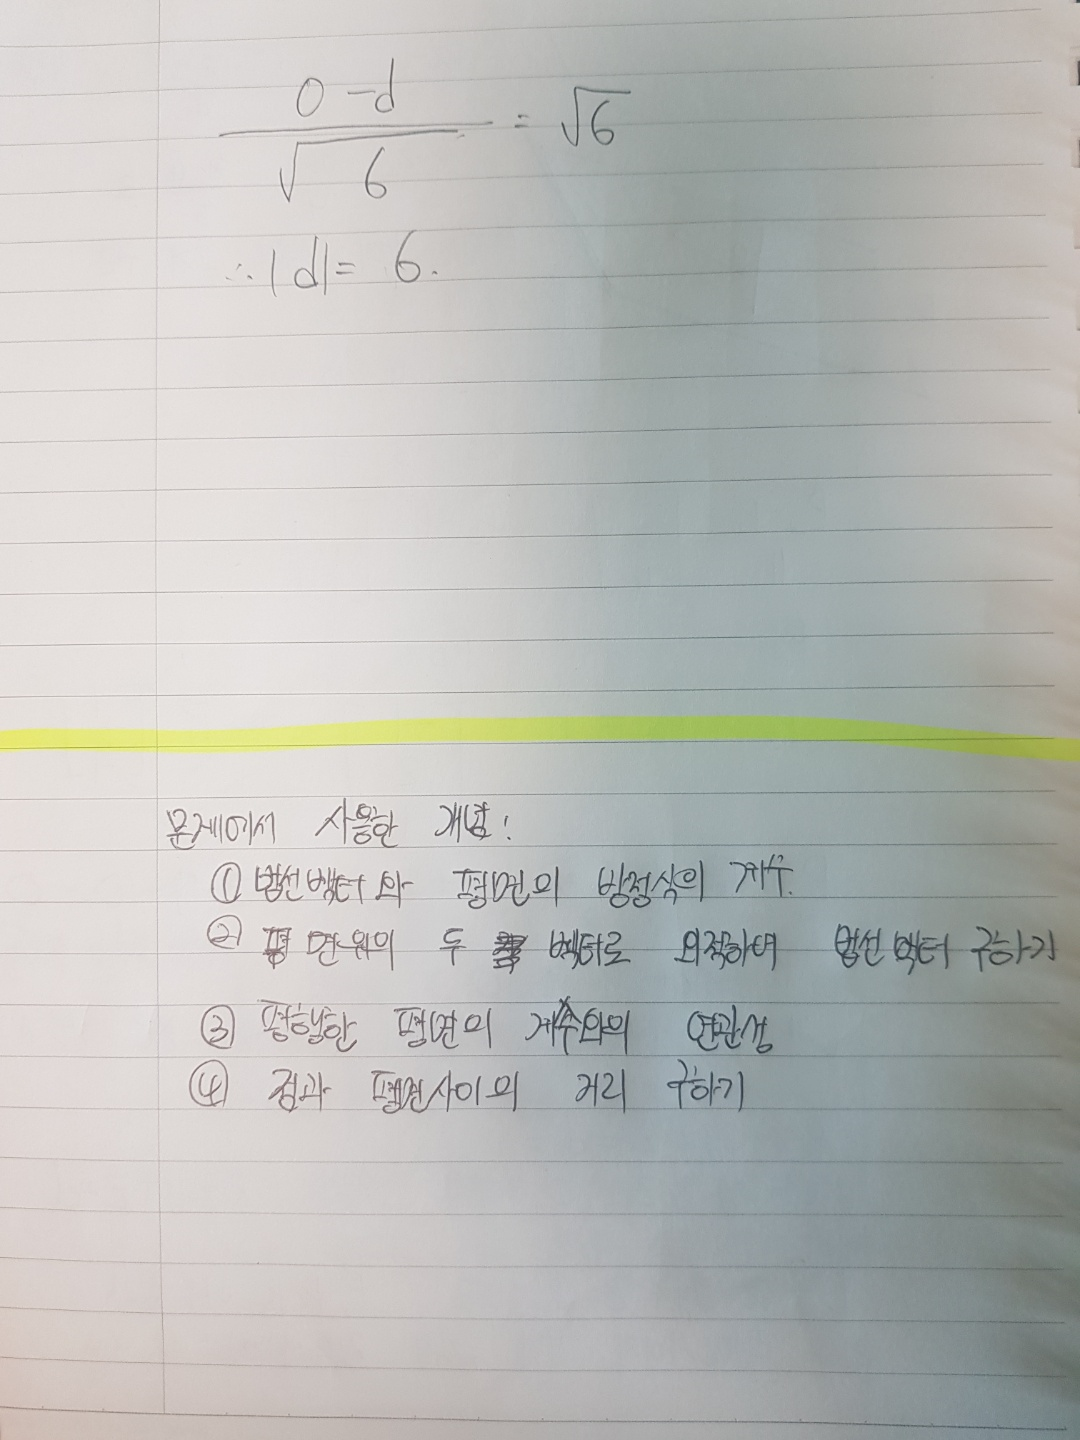 0 -d
= √6
√ 6
∴ |d| = 6.
문제에서 사용한 개념:
① 법선벡터와 평면의 방정식의 계수.
② 평면위의 두 벡터로 외적하여 법선벡터 구하기
③ 평행한 평면의 계수와의 연관성
④ 점과 평면사이의 거리 구하기